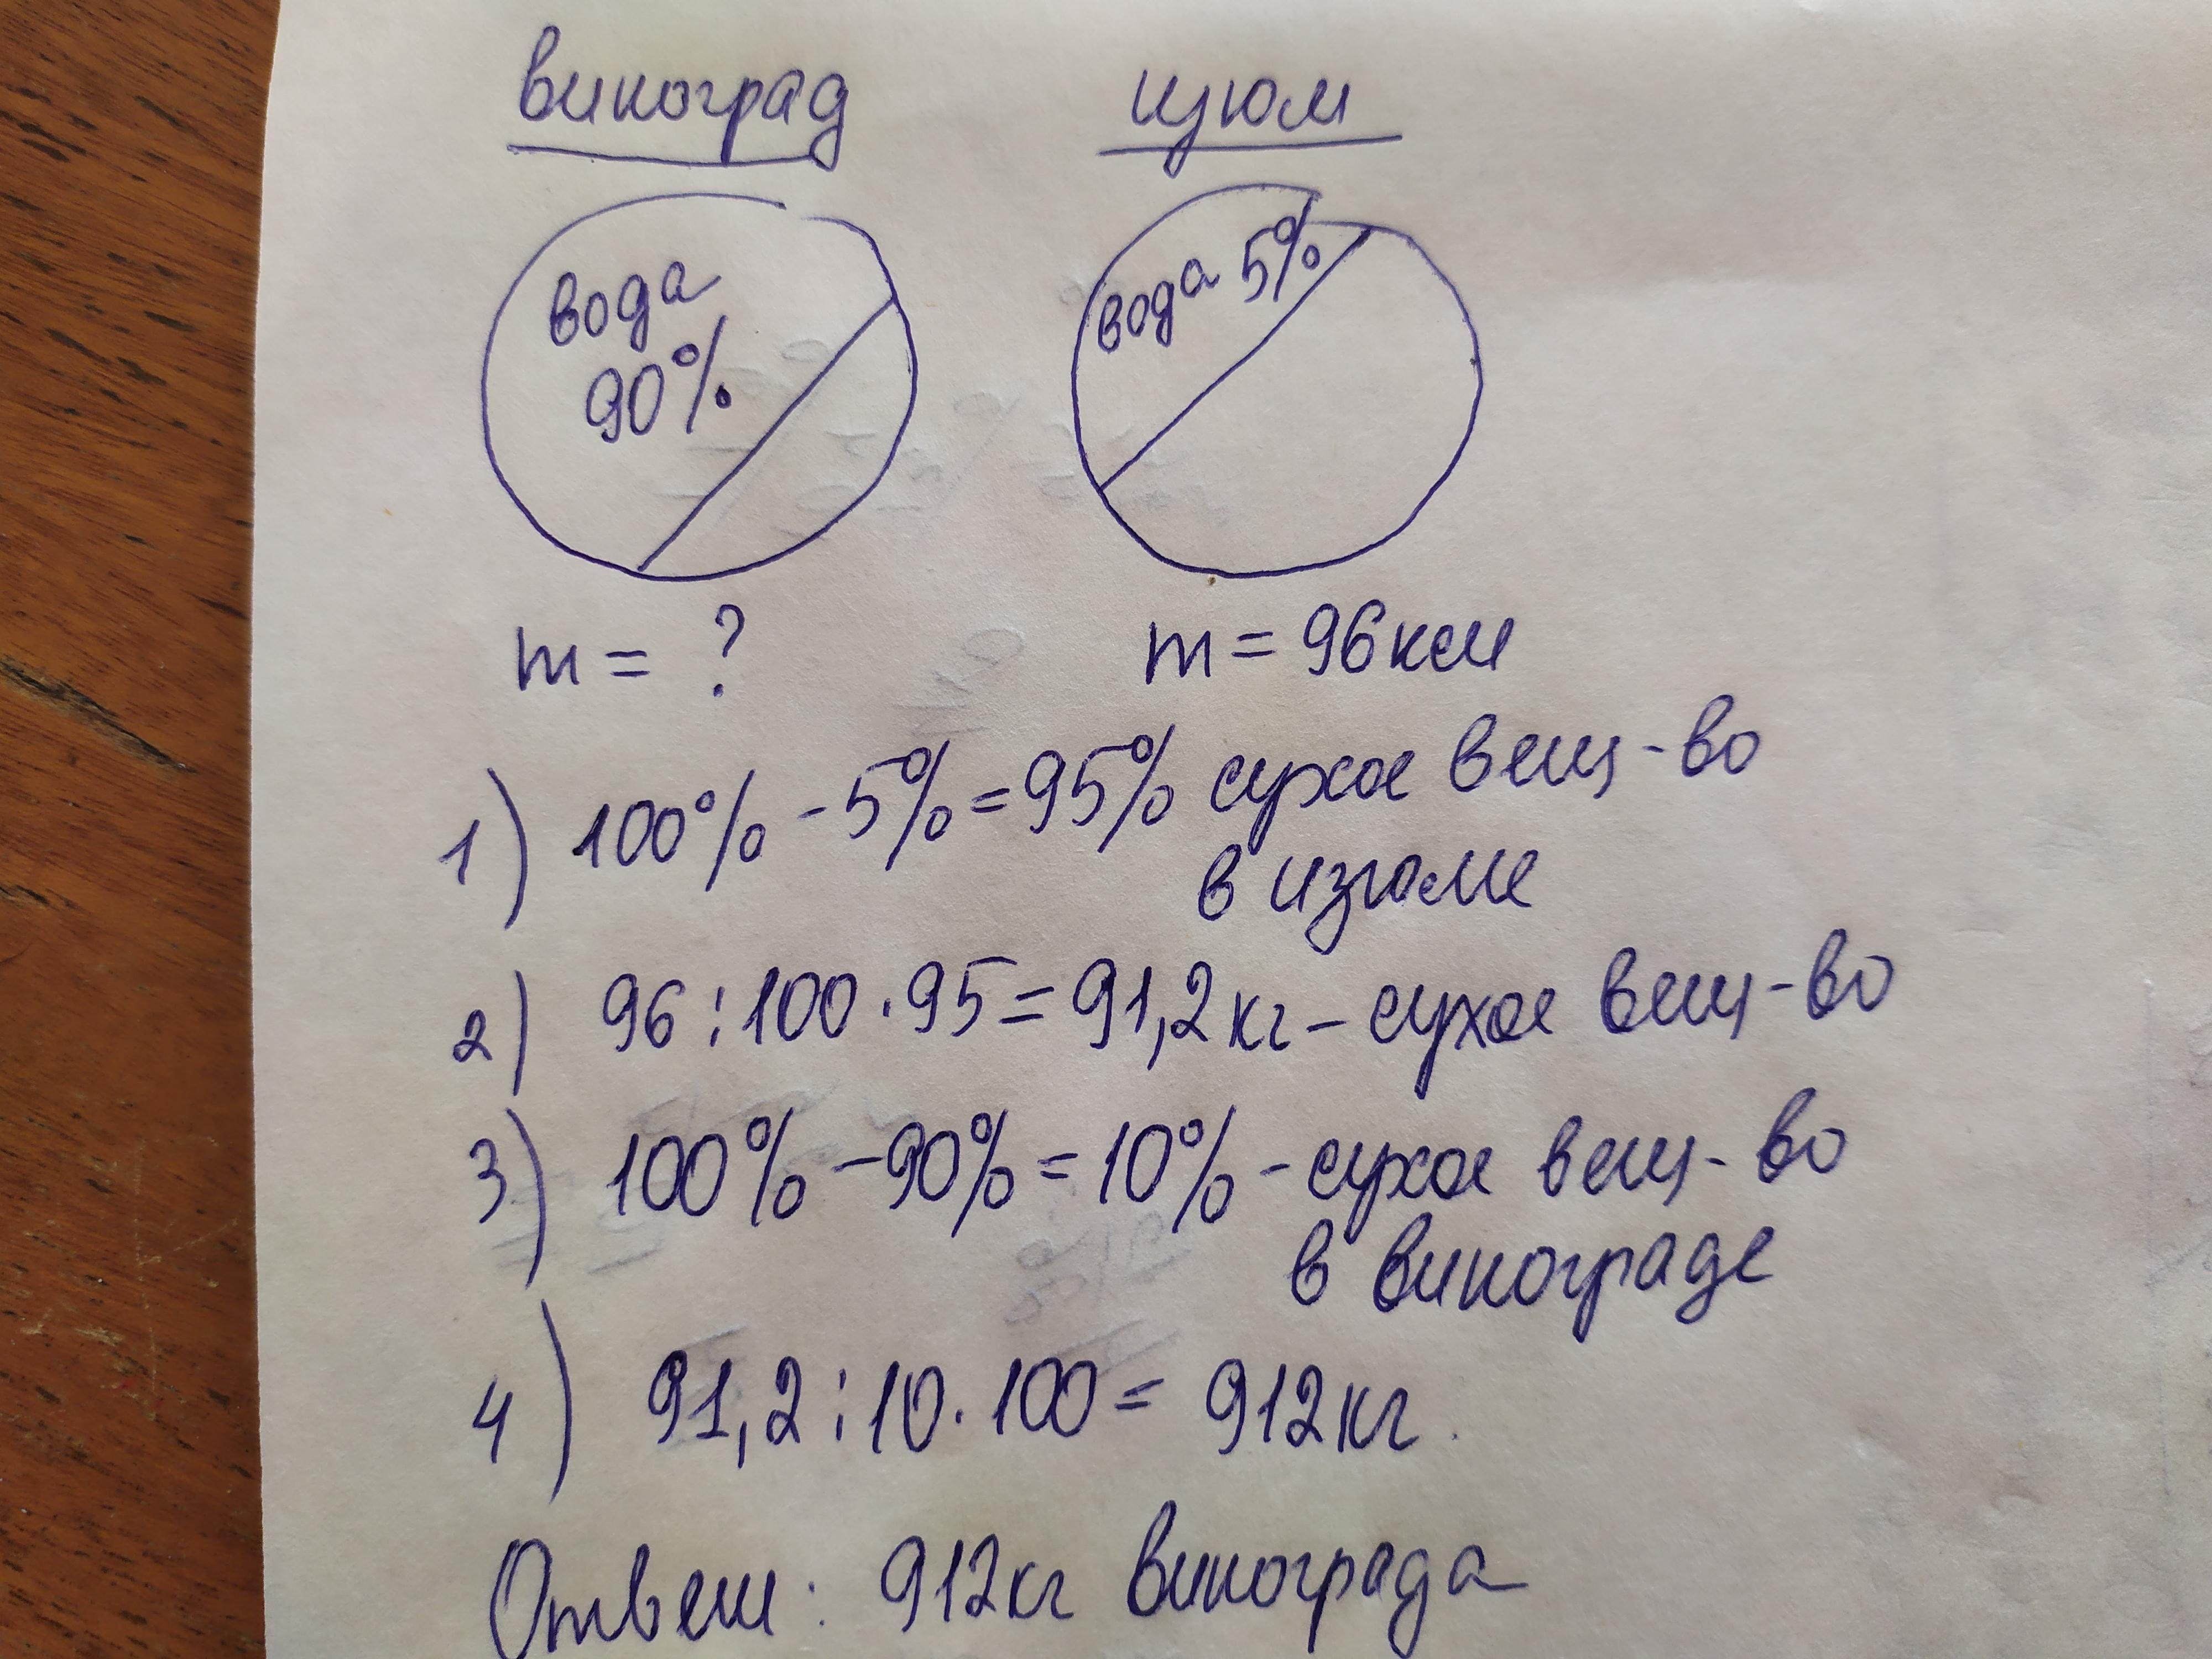 виноград изюм
вода 90%
вода 5%
m = ? m = 96 кги
1) 100% - 5% = 95% сухое вещ-во
в изюме
2) 96 : 100 · 95 = 91,2 кг - сухое вещ-во
3) 100% - 90% = 10% - сухое вещ-во
в винограде
4) 91,2 : 10 · 100 = 912 кг.
Ответ: 912 кг винограда